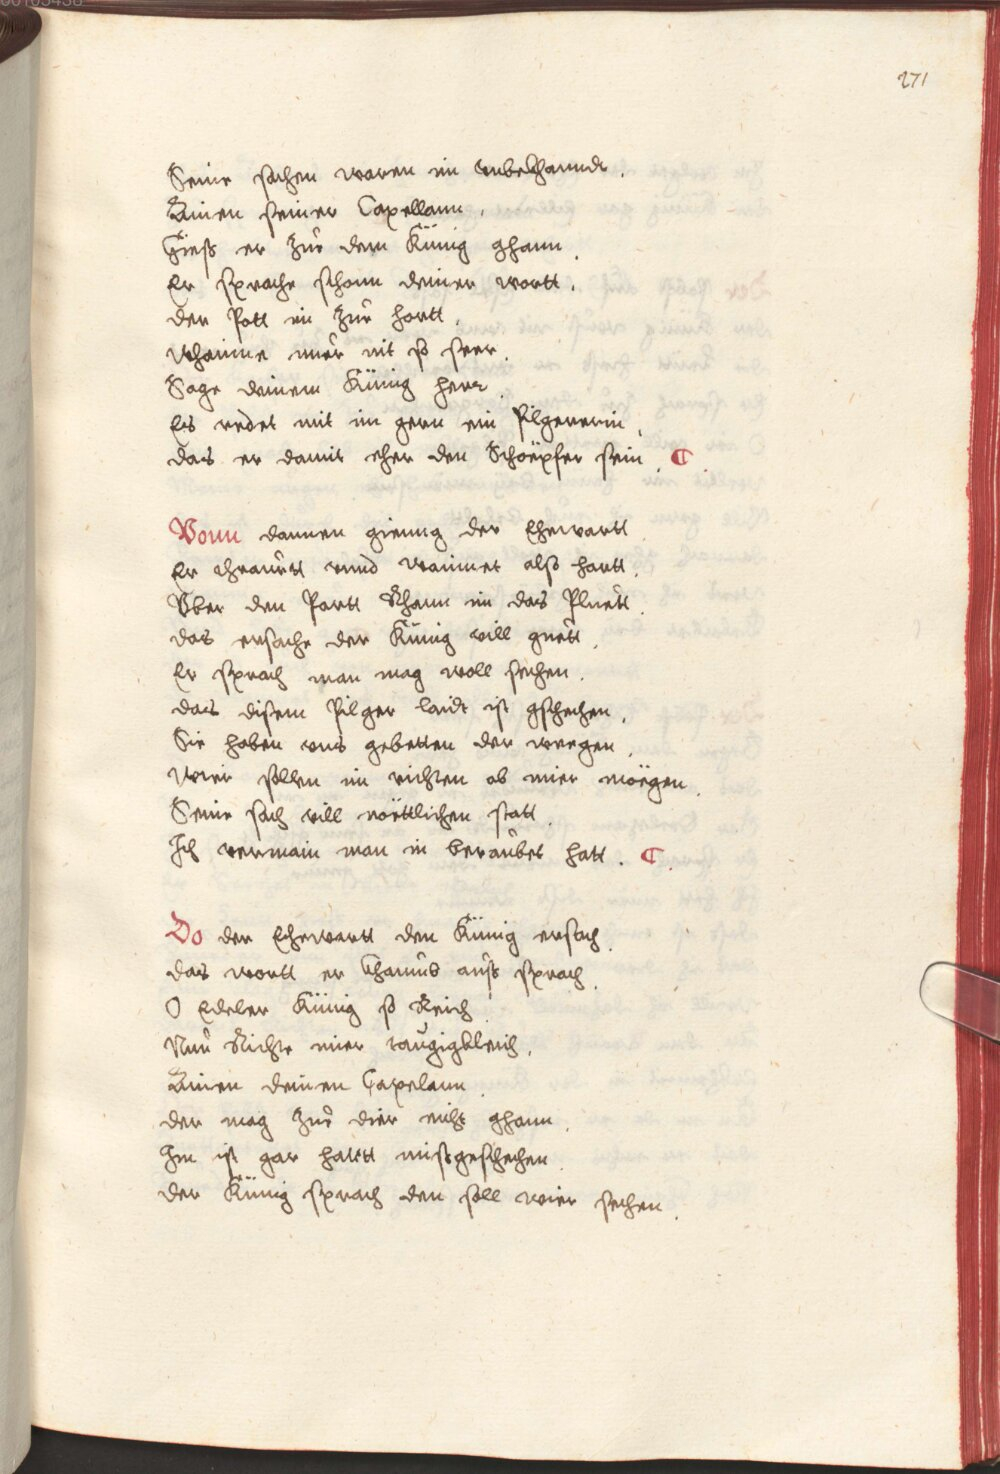 271
Seine sachen waren im unbekhanndt.
Ainen seiner Capellann.
Hieß er zůr dem Künig ghann.
Er sprache schonn deiner wortt.
der Pott im zůr hortt.
Whainne mier nit so seer.
Sage deinem Künig herr.
Es redet mit im gern ein Pilgererin.
das er damit eher den Schoëpfer sein. C
Vonn dannen gienng der Ehewartt
Er thraürtt vnnd wainnet alß hartt.
Vber den Partt Khann im das Pluëtt.
das ersache der Künig vill guëtt.
Er sprach man mag woll sechen.
das disem Pilger laidt ist gschechen.
Sie haben vns gebetten der weegen.
Wier sollen im richten ob mier möegen.
Seine sach vill röettlichen statt.
Ich vermain man in beraübet hatt. C
Do der Ehewartt den Künig ersach.
das wortt er Khaumb auß sprach.
O Edeler Künig so Reich
Nun Richte mier taugigkleich.
Ainen deinen Capelann.
der mag zůr dier nicht ghann.
Im ist gar hartt missgeschechen.
der Künig sprach den soll wier sechen.